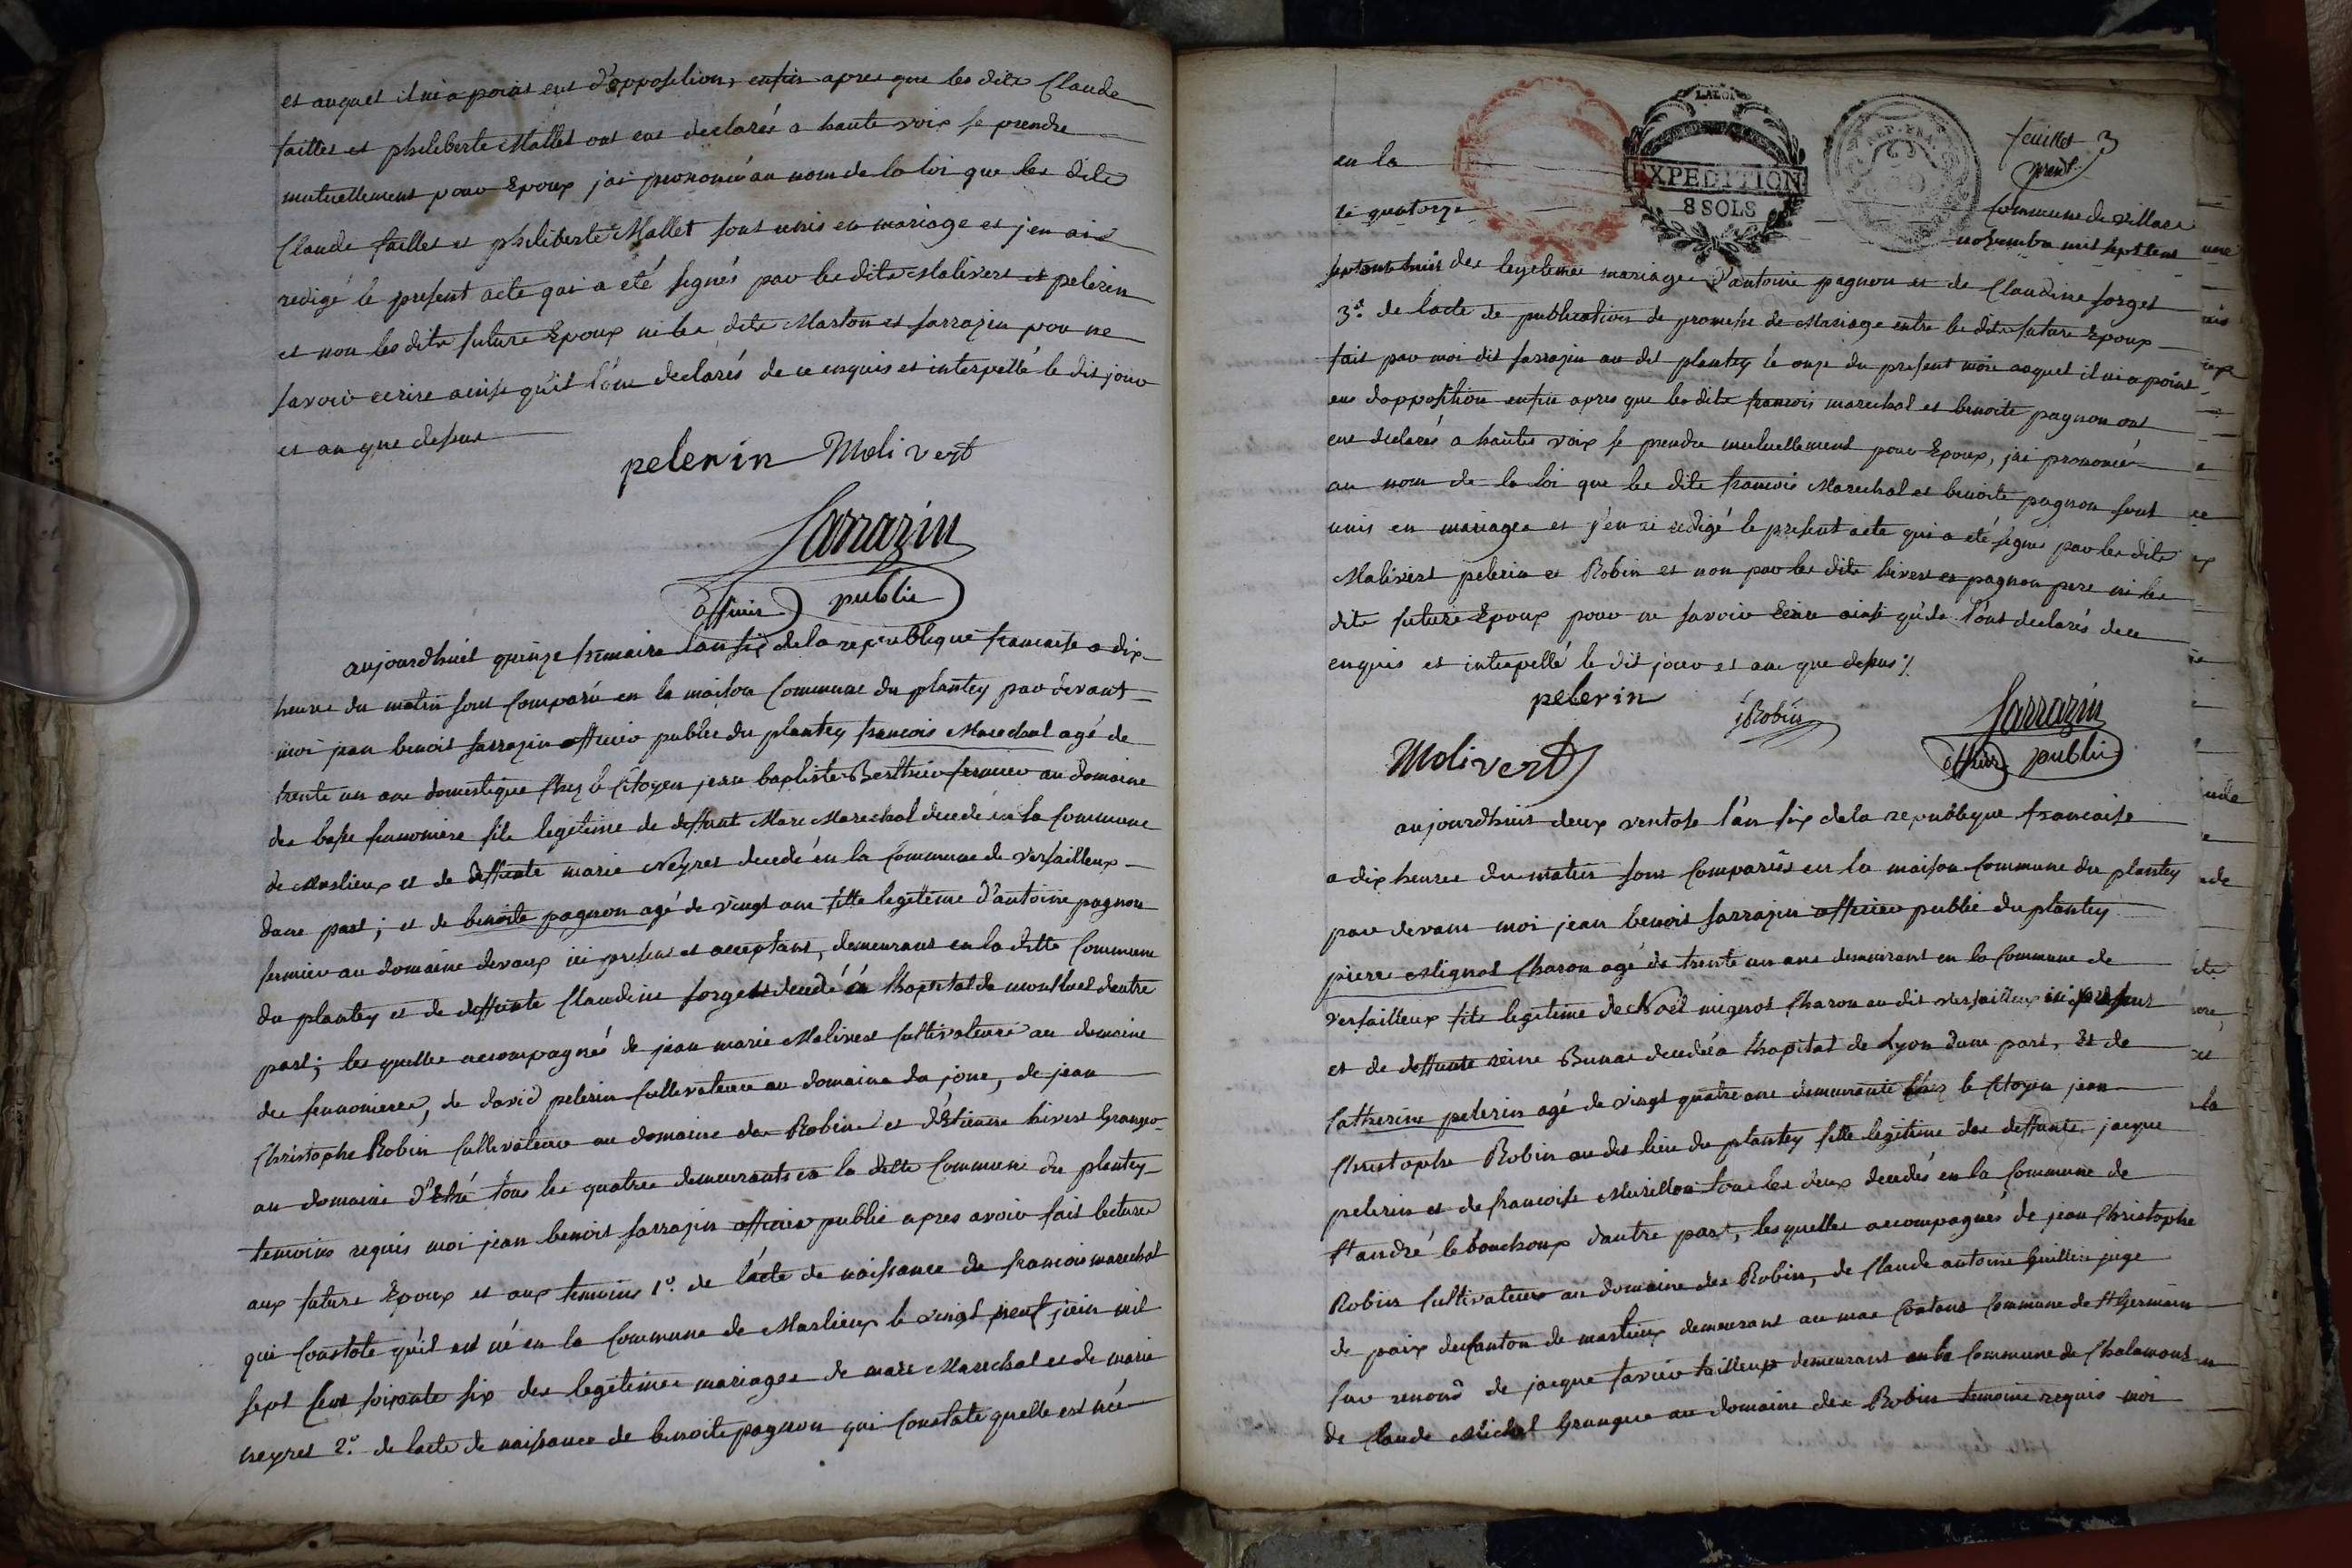 et auquel il ni a point eut d'opposition, enfin apres que les dits Claude
failles et philiberte Mallet ont eut declarés a haute voix se prendre
mutuellement pour Epoux j'ai prononcé au nom de la loi que les dits
Claude failles et philiberte Mallet sont unis en mariage et j'en ai
redigé le present acte qui a été signés par les dits Malivert et pelerin
et non les dits future Epoux ni les dits Marton et sarrazin pour ne
savoir ecrire ainsi qu'il l'ont declarés de ce enquis et interpellé le dit jour
et an que dessus
pelerin Molivert
Sarrazin
officier public
aujourdhuit quinze frimaire l'an six de la republique francaise a dix
heures du matin sont comparu en la maison Commune du plantey par devant
moi jean benoit sarrazin officier public du plantey francois Marechal agé de
trente un ans domestique chez le Citoyen jean baptiste Berthier fermier au domaine
des basse fennoniere fils legitime de deffunt Marc Marechal decedé en la Commune
de Marlieux et de deffunte marie Neyret decedé en la Commune de versailleux
dune part; et de benoite pagnon agé de vingt ans fille legitime d'antoine pagnon
fermier au domaine devaux ici present et acceptant, demeurant en la ditte Commune
du plantey et de deffunte Claudine forget decedé a l'hopital de montluel dautre
part; les quelles accompagnés de jean marie Malivert cultivateur au domaine
des fennonieres, de david pelerin cultivateur au domaine du jonc, de jean
Christophe Robin cultivateur au domaine des Robin et d'Etienne hivert Granger
au domaine d'Etré tous les quatre demeurants en la ditte Commune du plantey
temoins requis moi jean benoit sarrazin officier public apres avoir fait lecture
aux future Epoux et aux temoins 1º. de l'acte de naissance de francois marechal
qui Constate qu'il est né en la Commune de Marlieux le vingt neuf juin mil
sept cent soixante six des legitimes mariages de marc Marechal et de marie
neyret 2º. de lacte de naissance de benoite pagnon qui Constate quelle est née
feuillet 3
LA LOI
REP. FRA
EXPEDITION
8 SOLS
en la Commune de villars
le quatorze novembre mil sept cent
septante huit des legitimes mariages d'antoine pagnon et de Claudine forget
3º. de lacte de publication de promesse de Mariage entre les dits future Epoux
fait par moi dit sarrazin au dit plantey le onze du present mois auquel il ni a point
eut dopposition enfin apres que les dits francois marechal et benoite pagnon ont
eut declarés a hautes voix se prendre mutuellement pour Epoux, j'ai prononcé
au nom de la loi que les dits francois Marechal et benoite pagnon sont
unis en mariages et j'en ai redigé le present acte qui a été signé par les dits
Malivert pelerin et Robin et non par les dits hivert et pagnon pere ni les
dits future Epoux pour ne savoir Ecrire ainsi qu'ils l'ont declarés de ce
enquis et interpellé le dit jour et an que dessus
pelerin
Robin
Sarrazin
Molivert
officier public
aujourdhuit deux ventose l'an six de la republique francaise
a dix heures du matin sont Comparus en la maison Commune du plantey
par devant moi jean benoit sarrazin officier public du plantey
pierre Mignot Charon agé de trente un ans demeurant en la Commune de
versailleux fils legitime de Noël mignot Charon au dit versailleux ici present
et de deffunte reine Bunac decedé a l'hopital de Lyon dune part, Et de
Catherine pelerin agé de vingt quatre ans demeurante chez le Citoyen jean
Christophe Robin au dit lieu du plantey fille legitime des deffunts jacque
pelerin et de francoise Murillon tous les deux decedés en la Commune de
st andré le bouchoux dautre part, les quelles accompagnés de jean Christophe
Robin Cultivateur au domaine des Robin, de Claude antoine Guillin juge
de paix du Canton de marlieux demeurant au mas Commune de st Germain
sur renond de jacque favier tailleur demeurant en la Commune de Chalamont
de Claude Michel Grangé au domaine des Robin temoins requis moi